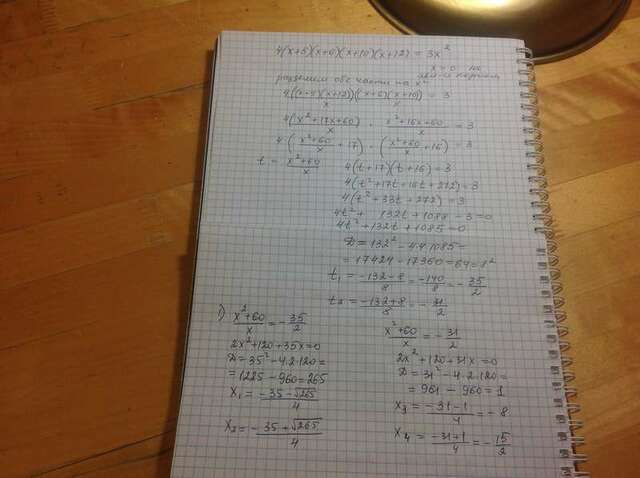 4(x+5)(x+6)(x+10)(x+12) = 3x²
x=0 не
разделим обе части на x²
4((x+5)(x+12))/x · ((x+6)(x+10))/x = 3
4(x²+17x+60)/x · (x²+16x+60)/x = 3
4((x²+60)/x + 17) · ((x²+60)/x + 16) = 3
t = (x²+60)/x 4(t+17)(t+16) = 3
4(t²+17t+16t+272) = 3
4(t²+33t+272) = 3
4t²+ 132t+1088 - 3 = 0
4t²+132t+1085 = 0
D = 132² - 4·4·1085 =
= 17424 - 17360 = 64 = 8²
t₁ = (-132-8)/8 = -140/8 = -35/2
t₂ = (-132+8)/8 = -31/2
1) (x²+60)/x = -35/2
2x²+120+35x=0
D = 35² - 4·2·120 =
= 1225 - 960 = 265
x₁ = (-35-√265)/4
x₂ = (-35+√265)/4
(x²+60)/x = -31/2
2x²+120+31x=0
D = 31² - 4·2·120 =
= 961 - 960 = 1
x₃ = (-31-1)/4 = -8
x₄ = (-31+1)/4 = -15/2